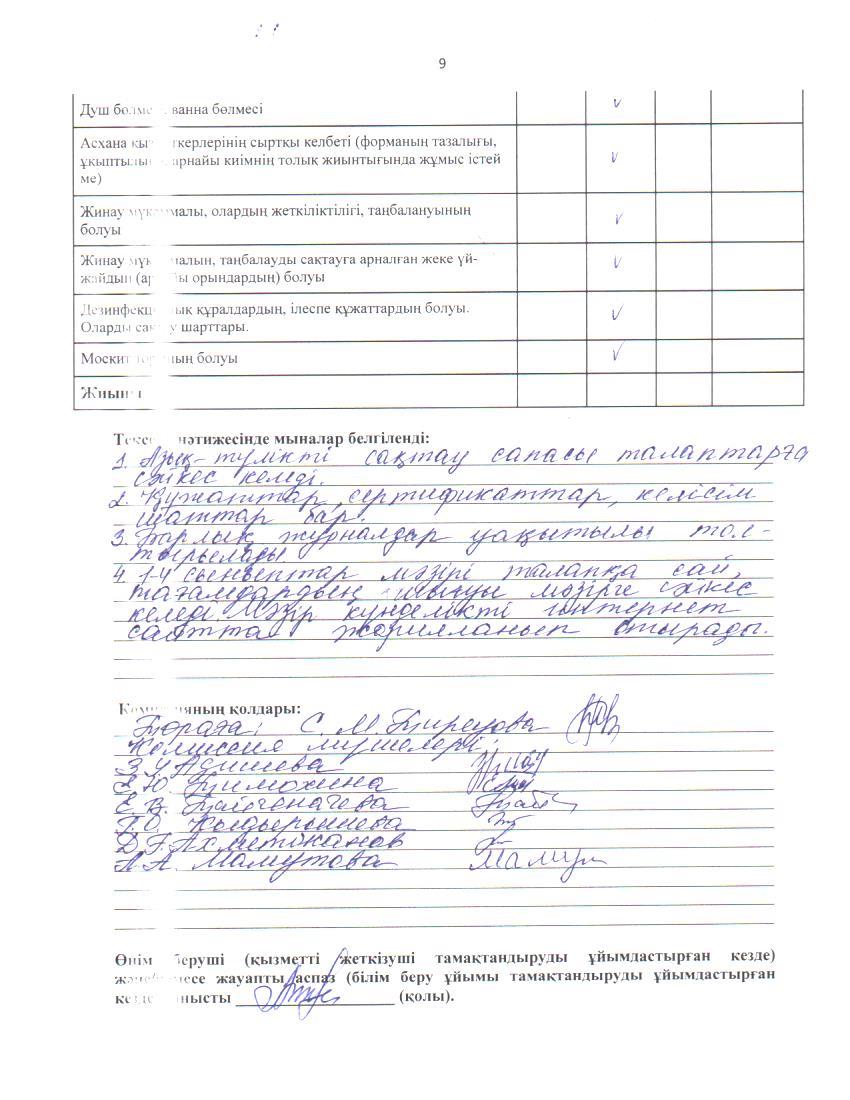 9
Душ бөлме ванна бөлмесі
Асхана қызметкерлерінің сыртқы келбеті (форманың тазалығы,
ұқыптылығы, арнайы киімнің толық жиынтығында жұмыс істей
ме)
Жинау мүкаммалы, олардың жеткіліктілігі, таңбалануының
болуы
Жинау мүкаммалын, таңбалауды сақтауға арналған жеке үй-
жайдын (арнайы орындардың) болуы
Дезинфекциялық құралдардың, ілеспе құжаттардың болуы.
Оларды сақтау шарттары.
Москит торының болуы
Жиыны
Тексеру нәтижесінде мыналар белгіленді:
1. Азық-түлікті сақтау сапасы талаптарға
сәйкес келеді.
2. Құжаттар, сертификаттар, келісім
шаттар бар.
3. Барлық журналдар уақытылы тол-
тырылады.
4. 1-4 сыныптар мәзірі талапқа сай,
тағамдардың шығуы мәзірге сәйкес
келеді. Мәзір күнделікті интернет
саятта жарияланып отырады.
Комиссияның қолдары:
Төраға: С. М.
Комиссия мүшелері
Е. В.
Д. Г. Ахметжанов
А. А. Мамутова
Өнім беруші (қызметті жеткізуші тамақтандыруды ұйымдастырған кезде)
және/немесе жауапты аспаз (білім беру ұйымы тамақтандыруды ұйымдастырған
кезде) танысты (қолы).